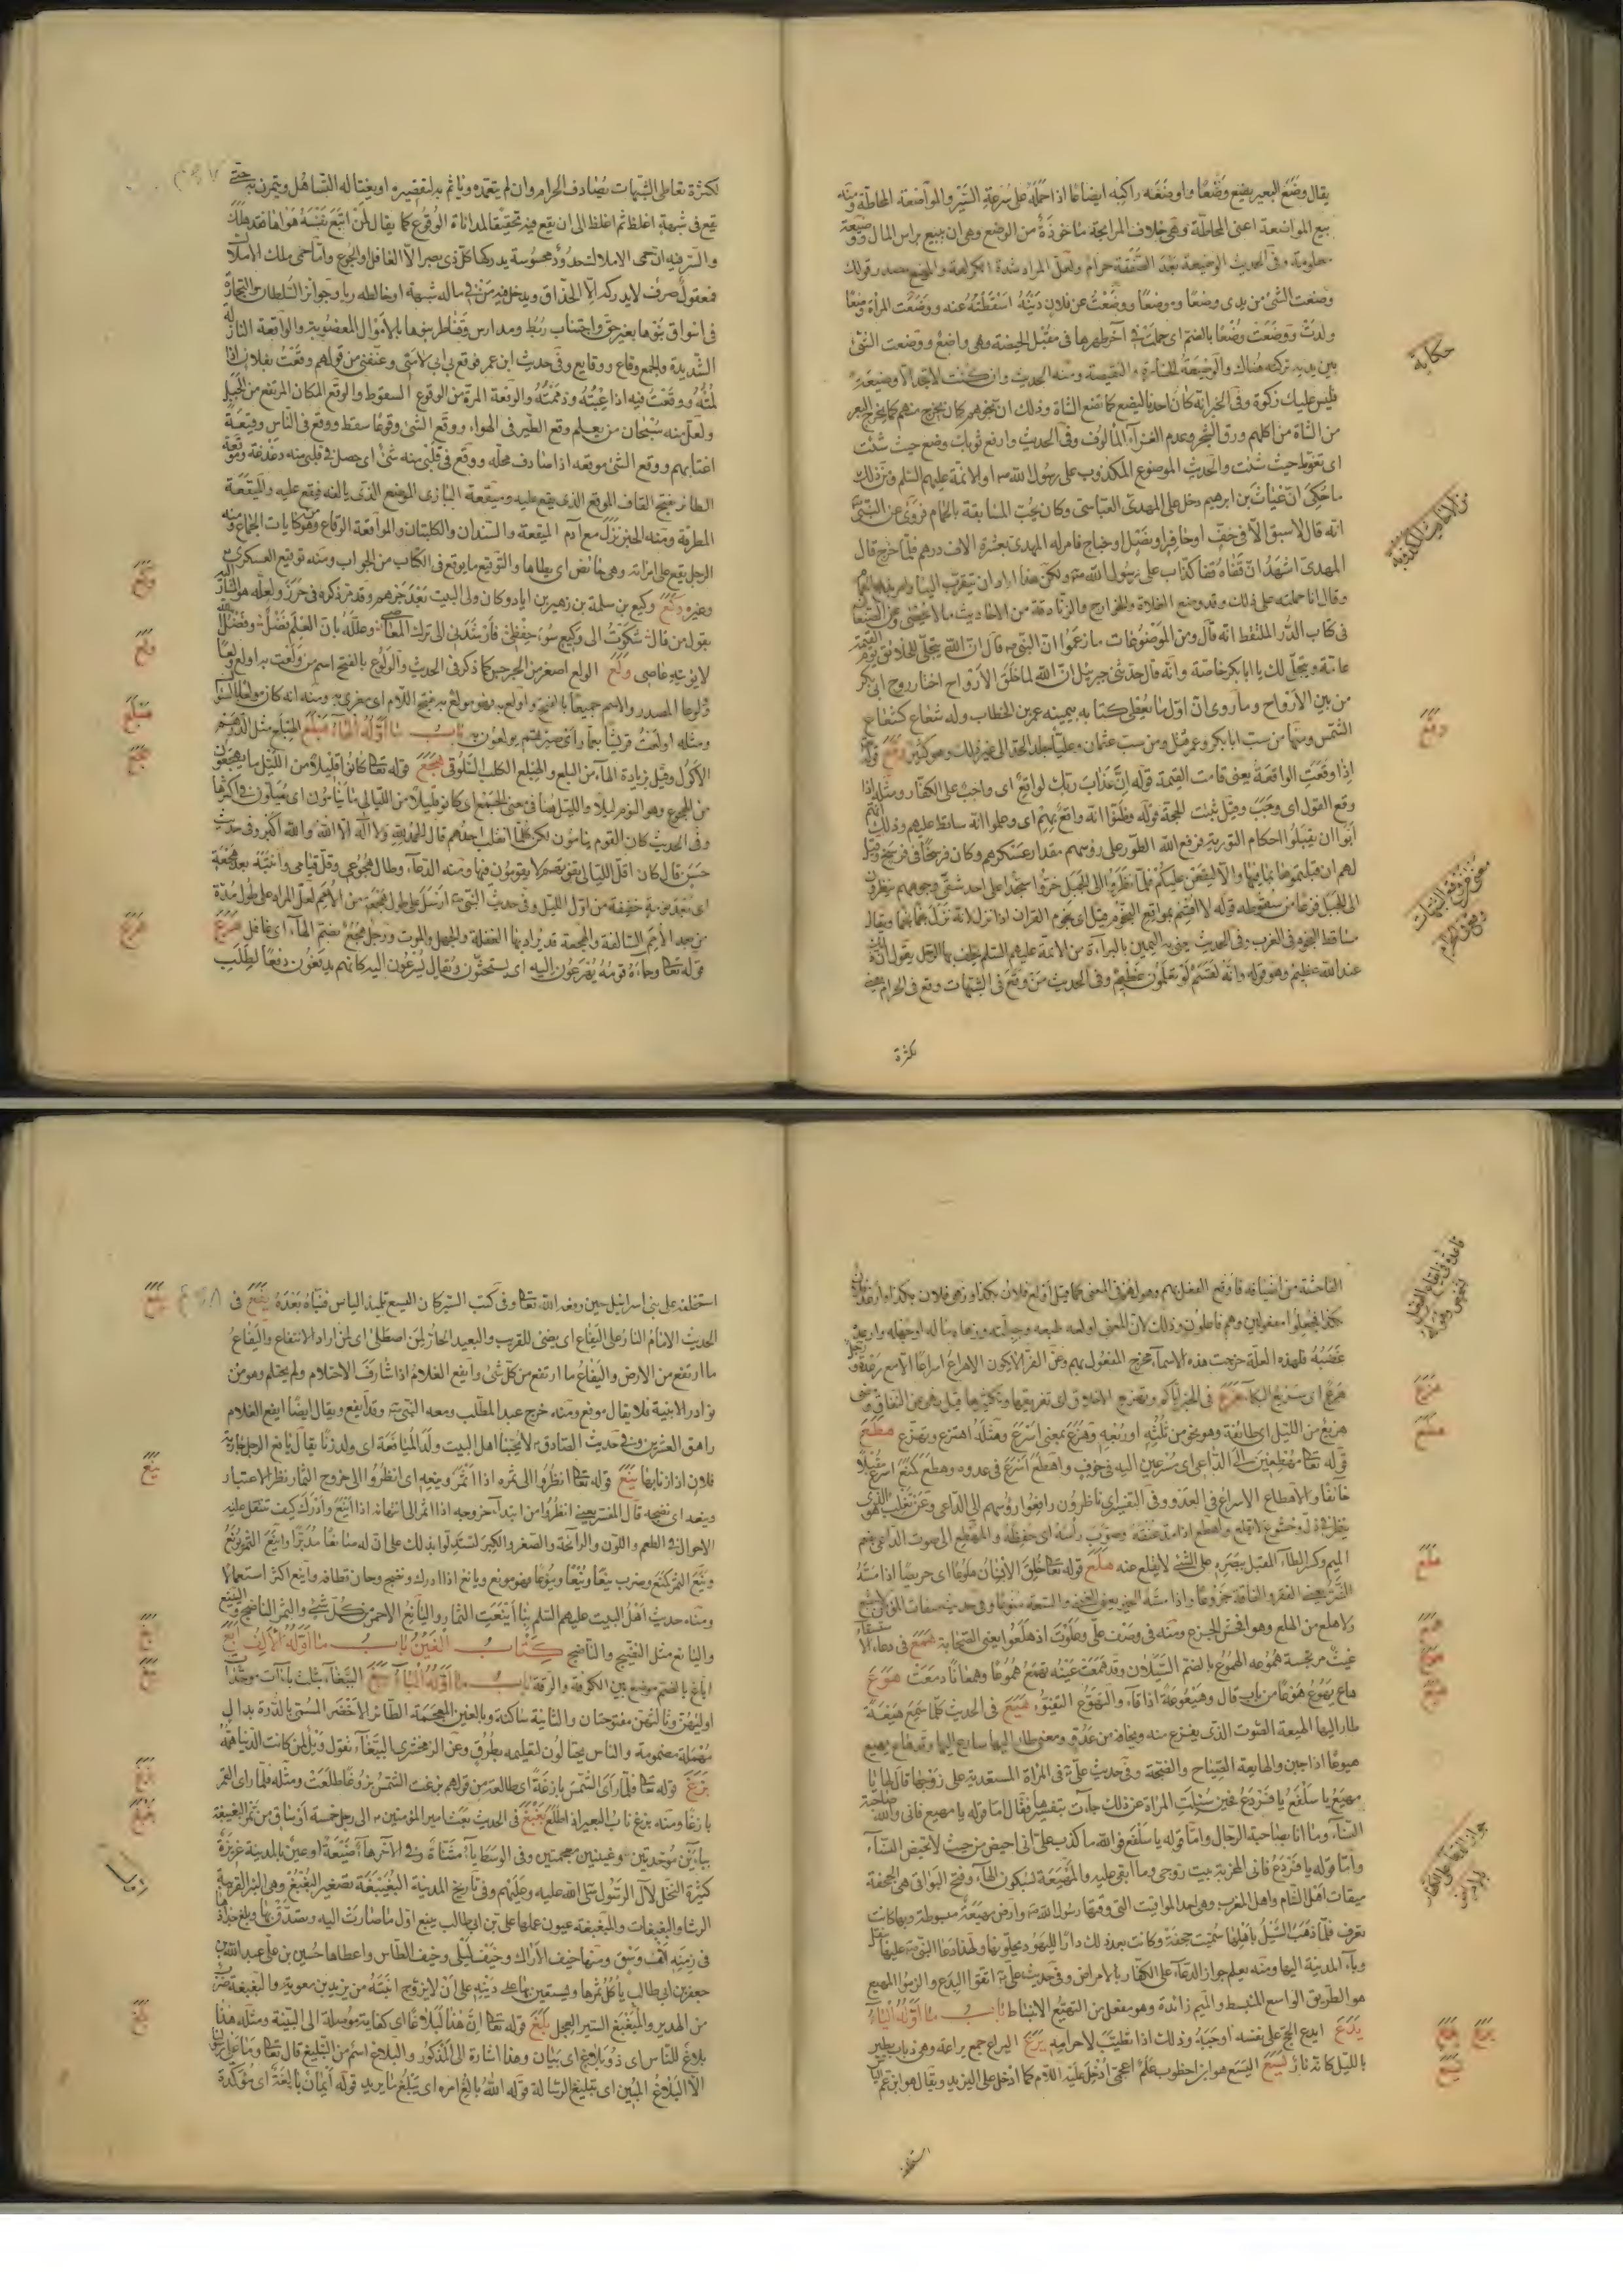 يقال وضع البعير يضع وضعا واوضعه راكبه ايضاعا اذا حمله على سرعة السير والمواضعة المحاطة ومنه
بيع المواضعة اعنى المحاطة وهى خلاف المرابحة ماخوذة من الوضع وهى ان يبيع براس المال ووضيعة
معلومة وفى الحديث الوضيعة بعد الصفقة حرام ولعل المراد شدة الكراهة والموضع مصدر قولك
وضعت الشئ من يدى وضعا وموضعا ووضعت عن فلان دينه اسقطته عنه ووضعت المراة وضعا
ولدت ووضعت وضعا بالضم اى حملت فى آخر طهرها فى مقبل الحيضة وهى واضع ووضعت الشئ
بين يديه تركته هناك والوضيعة الخسارة والنقيصة ومنه الحديث وان كنت لاتجد الا وضيعة
حكاية
فليس عليك زكوة وفى الخبر انه كان احدنا ليضع كما تضع الشاة وذلك ان نجوهم كان يخرج منهم كما يخرج البعر
من الشاة من اكلهم ورق الشجر وعدم الغذاء المالوف وفى الحديث وارفع ثوبك وضع حيث شئت
اى تغوط حيث شئت والحديث الموضوع المكذوب على رسول الله ص او الائمة عليهم السلم ومن ذلك
ما حكى ان غياث بن ابرهيم دخل على المهدى العباسى وكان يحب المسابقة بالحمام فروى عن النبى ص
انه قال لاسبق الا فى خف او حافر او نصل او جناح فامر له المهدى بعشرة الاف درهم فلما خرج قال
المهدى اشهد ان قفاه قفا كذاب على رسول الله ص ولكن هذا اراد ان يتقرب الينا وامر بذبحها
وقال انا حملته على ذلك وقد وضع الغلاة والخوارج والزنادقة من الاحاديث ما لا يحصى وعن الصنعانى
فى كتاب الدر الملتقط انه قال ومن الموضوعات ما زعموا ان النبى ص قال ان الله يتجلى للخلائق يوم القيمة
عامة ويتجلى لك يا ابابكر خاصة وانه قال حدثنى جبرئيل ان الله لما خلق الارواح اختار روح ابى بكر
من بين الارواح وما روى ان اول من يعطى كتابه بيمينه عمر بن الخطاب وله شعاع كشعاع
الشمس ومنها من سب ابابكر وعمر قتل ومن سب عثمان وعليا جلد الحد الى غير ذلك وهو كثير وقع قوله
اذا وقعت الواقعة يعنى قامت القيمة قوله ان عذاب ربك لواقع اى واجب على الكفار ومثله اذا
وقع القول اى وجب وقيل ثبت الحجة قوله وظنوا انه واقع بهم اى وعلموا انه ساقط عليهم وذلك انهم
ابوا ان يقبلوا احكام التورية فرفع الله الطور على رؤسهم مقدار عسكرهم وكان فرسخا فى فرسخ وقيل
لهم ان قبلتموها بما فيها والا ليقعن عليكم فلما نظروا الى الجبل خروا سجدا على احد شقى وجوههم ينظرون
الى الجبل فزعا من سقوطه قوله لا اقسم بمواقع النجوم قيل اى نجوم القران اذا نزل لانه نزل نجما نجما ويقال
مساقط النجوم فى الغرب وفى الحديث
عند الله عظيم وهو قوله وانه لقسم لو تعلمون عظيم وفى الحديث من وقع فى الشبهات وقع فى الحرام يعنى
لكثرة
لكثرة تعاطى الشبهات يصادف الحرام وان لم يتعمده وياثم به لتقصيره او يعتاد التساهل ويتمرن به حتى
يقع فى شبهة اغلظ ثم اغلظ الى ان يقع فيه تحقيقا لمداناة الوقوع كما يقال من اتبع نفسه هواها فقد هلك
والسر فيه ان حمى الاملاك حدود محسوسة يدركها كل ذى بصر الا الغافل او الجموح واما حمى ملك الاملاك
فمعقول صرف لايدركه الا الحذاق ويدخل فيه من فى ماله شبهة او خالطه ربا وجوائز السلطان والتجارة
فى اسواق بنوها بغير حق واجتناب ربط ومدارس وقناطر بنوها بالاموال المغصوبة والواقعة النازلة
الشديدة والجمع وقاع ووقايع وفى حديث ابن عمر فوقع بى ابى لامنى وعنفنى من قولهم وقعت بفلان اذا
لمته ووقعت فيه اذا عبته وذممته والوقعة المرة من الوقوع السقوط والوقع المكان المرتفع من الجبل
ولعل منه سبحان من يعلم وقع الطير فى الهواء ووقع الشئ وقوعا سقط ووقع فى الناس وقيعة
اغتابهم ووقع الشئ موقعه اذا صادف محله ووقع فى قلبى منه شئ اى حصل فى قلبى منه دغدغة وقعة
الطائر بفتح القاف الموقع الذى يقع عليه وميقعة البازى الموضع الذى يالفه فيقع عليه والميقعة
المطرقة ومنه الخبر نزل مع آدم الميقعة والسندان والكلبتان والمواقعة الوقاع وهو من كنايات الجماع ومنه
الرجل يقع على امراته وهى حائض اى يطاها والتوقيع ما يوقع فى الكتاب من الجواب ومنه توقيع العسكرى ع
وغيره وكع وكيع بن سلمة بن زهير بن اياد وكان ولى البيت بعد جرهم وقد مر ذكره فى حزر ولعله هو المشار اليه
بقول من قال شكوت الى وكيع سوء حفظى فارشدنى الى ترك المعاصى وعلله بان العلم فضل وفضل الله
لا يؤتيه عاصى ولع الولع اصغر من الجرجير كما ذكر فى الحديث والولوع بالفتح اسم من ولعت به اولع ولعا
وولوعا المصدر والاسم جميعا بالفتح واولع به فهو مولع به بفتح اللام اى مغرى به ومنه انه كان مولعا
ومثله اولعت قريشا بعمار اى صيرتهم يولعون به باب ما اوله الهاء هبلع الهبلع مثل الدرهم
الاكول وقيل بزيادة الهاء من البلع والهبلع الكلب السلوقى هجع قوله تعا كانوا قليلا من الليل ما يهجعون
من الهجوع وهو النوم ليلا
وفى الحديث كان القوم ينامون لكن كلما انقلب احدهم قال الحمد لله ولا اله الا الله والله اكبر وفى حديث
حسن قال كان اقل الليالى يفوتهم لا يقومون فيها ومنه الدعاء وطال هجوعى وقل قيامى واتيته بعد هجعة
اى بعد نومة خفيفة من اول الليل وفى حديث النبى ص ارسله على طول هجعة من الامم لعل المراد على طول مدة
من بعد الامم السالفة والهجعة قد يراد بها الغفلة والجهل والموت ورجل هجع بضم الهاء اى غافل هرع
قوله تعا وجاءه قومه يهرعون اليه اى يستحثون ويقال يسرعون اليه كانهم يدفعون دفعا لطلب
الفاحشة من اضيافه فاوقع الفعل بهم وهو لهم فى المعنى كما قيل اولع فلان بكذا وزهى فلان بكذا وارعد فلان
غضبه فلهذه العلة خرجت هذه الاسماء مخرج المفعول بهم وعن الفراء لا يكون الاهراع اسراعا الا مع رعدة ورجل
هرع اى سريع البكاء هزع فى الخبر اياكم وتهزيع الاخلاق اى تغريقها وتكسيرها
هزيع من الليل اى طائفة وهو نحو من ثلثه او ربعه وهزع بمعنى اسرع ومثله اهتزع وتهزع هطع
قوله تعا مهطعين الى الداعى اى مسرعين اليه فى خوف واهطع اسرع فى عدوه وهطع كمنع اسرع مقبلا
خائفا والاهطاع الاسراع فى العدو وفى التفسير اى ناظرون رافعوا رؤسهم الى الداعى وعن ثعلب هو الذى
ينظر فى ذل وخشوع لا يقلع واهطع اذا مد عنقه وصوب راسه اى خفضه والمهطع الى صوت الداعى بضم
الميم وكسر الطاء المقبل ببصره على الشئ لا يقلع عنه هلع قوله تعا خلق الانسان هلوعا اى حريصا اذا مسه
الشر يعنى الفقر والفاقة جزوعا واذا مسه الخير يعنى الغنى والسعة منوعا وفى حديث صفات المؤمن لا جشع
ولا هلع من الهلع وهو افحش الجزع ومنه فى وصف على وصلوت اذ هلعوا يعنى الصحابة همع فى دعاء الاستسقاء
غيث مربحسة هموعه الهموع بالضم السيلان وقد همعت عينه تهمع هموعا وهمعانا دمعت هوع
هاع يهوع هوعا من باب قال وهيعوعة اذا قاء والتهوع التقيؤ هيع فى الحديث كلما سمع هيعة
طار اليها الهيعة الصوت الذى يفزع منه ويخافه من عدو ومعنى طار اليها سارع اليها وقد هاع يهيع
هيوعا اذا جبن والهايعة الصياح والضجة وفى حديث على ع فى المراة المستعدية على زوجها قال لها يا
مهيع يا سلفع يا قردع فحين سئلت المراة عن ذلك جاءت بتفسيرها فقال اما قوله يا مهيع فانى والله صاحبة
النساء وما انا بصاحبة الرجال واما قوله يا سلفع فوالله ما كذب على انى احيض من حيث لا تحيض النساء
واما قوله يا قردع فانى المخربة بيت زوجى وما ابقى عليه والمهيعة بسكون الهاء وفتح البواقى هى الجحفة
ميقات اهل الشام واهل المغرب وهى احد المواقيت التى وقتها رسول الله ص وارض مهيعة مبسوطة وبها كانت
تعرف فلما ذهب السيل باهلها سميت جحفة وكانت بعد ذلك دارا لليهود يحلون بها ولهذا دعا النبى ص عليها بنقل
وباء المدينة اليها ومنه يعلم جواز الدعاء على الكفار بالامراض وفى حديث على ع اتقوا البدع والزموا المهيع
هو الطريق الواسع المنبسط والميم زائدة وهو مفعل من التهيع الانبساط باب ما اوله الياء
يدع ايدع الحج على نفسه اوجبه وذلك اذا تطيب لاحرامه يرع اليراع جمع يراعة وهى ذباب يطير
بالليل كانه نار يسع اليسع هو ابن اخطوب علم اعجمى ادخل عليه اللام كما ادخل على اليزيد ويقال هو ابن عم الياس
استخلفه
استخلفه على بنى اسرائيل حين رفعه الله تعا وفى كتب السير كان اليسع تلميذ الياس فنباه بعده يفع فى
الحديث الامام النار على اليفاع اى يضئ للقريب والبعيد الحار لمن اصطلى اى لمن اراد الانتفاع واليفاع
ما ارتفع من الارض واليفاع ما ارتفع من كل شئ وايفع الغلام اذا شارف الاحتلام ولم يحتلم وهو من
نوادر الابنية فلا يقال موفع ومنه خرج عبد المطلب ومعه النبى ص وقد ايفع ويقال ايضا ايفع الغلام
راهق العشرين وفى حديث الصادق ع لا يحبنا اهل البيت ولد الميافعة اى ولد زنا يقال يافع الرجل جارية
فلان اذا زنا بها ينع قوله تعا انظروا الى ثمره اذا اثمر وينعه اى انظروا الى خروج الثمار نظر الاعتبار
وينعه اى نضجه قال المفسر يعنى انظروا من ابتداء خروجه اذا اثمر الى انتهائه اذا اينع وادرك كيف تنتقل عليه
الاحوال فى الطعم واللون والرائحة والصغر والكبر لتستدلوا بذلك على ان له صانعا مدبرا واينع الثمر يونع
وينع الثمر كمنع وضرب ينعا وينعا وينوعا فهو مونع ويانع اذا ادرك ونضج وحان قطافه واينع اكثر استعمالا
ومنه حديث اهل البيت عليهم السلم بنا اينعت الثمار واليانع الاحمر من كل شئ والثمر الناضج والينيع
واليانع مثل النضيج والناضج كتاب الغين باب ما اوله الالف ابغ
اباغ بالضم موضع بين الكوفة والرقة باب ما اوله الباء ببغ الببغاء بثلث باآت موحدات
اوليهن وثالثهن مفتوحتان والثانية ساكنة وبالغين المعجمة الطائر الاخضر المسمى بالدرة بدال
مهملة مضمومة والناس يحتالون لتعليمه بطرق وعن الزمخشرى الببغاء تقول ويل لمن كانت الدنيا همه
بزغ قوله تعا فلما راى الشمس بازغة اى طالعة من قولهم بزغت الشمس بزوغا طلعت ومثله فلما راى القمر
بازغا ومنه بزغ ناب البعير اذا طلع بغبغ فى الحديث بعث امير المؤمنين ع الى رجل خمسة اوساق من تمر البغيبغة
ببائين موحدتين وغينين معجمتين وفى الوسط ياء مثناة وفى الآخر هاء ضيعة او عين بالمدينة غزيرة
كثيرة النخل لآل الرسول صلى الله عليه وعليهم وفى تاريخ المدينة البغيبغة تصغير البغبغ وهى البئر القريبة
الرشا والبغيبغات والبغيبغة عيون عملها على بن ابى طالب ينبع اول ما صارت اليه وتصدق بها وبلغ جذاذها
فى زمنه الف وسق ومنها خيف الاراك وخيف ليلى وخيف الطاس واعطاها حسين بن على عبد الله بن
جعفر بن ابى طالب ياكل ثمرها ويستعين بها على دينه على ان لا يزوج ابنته من يزيد بن معوية والبغبغة ضرب
من الهدير والمبغبغ السير العجل بلغ قوله تعا ان هذا لبلاغا اى كفاية موصلة الى البغية ومثله هذا
بلاغ للناس اى ذو بلاغ اى بيان وهذا اشارة الى المذكور والبلاغ اسم من التبليغ قال تعا وما على الرسول
الا البلاغ المبين اى تبليغ الرسالة قوله الله بالغ امره اى يبلغ ما يريد قوله ايمان بالغة اى مؤكدة